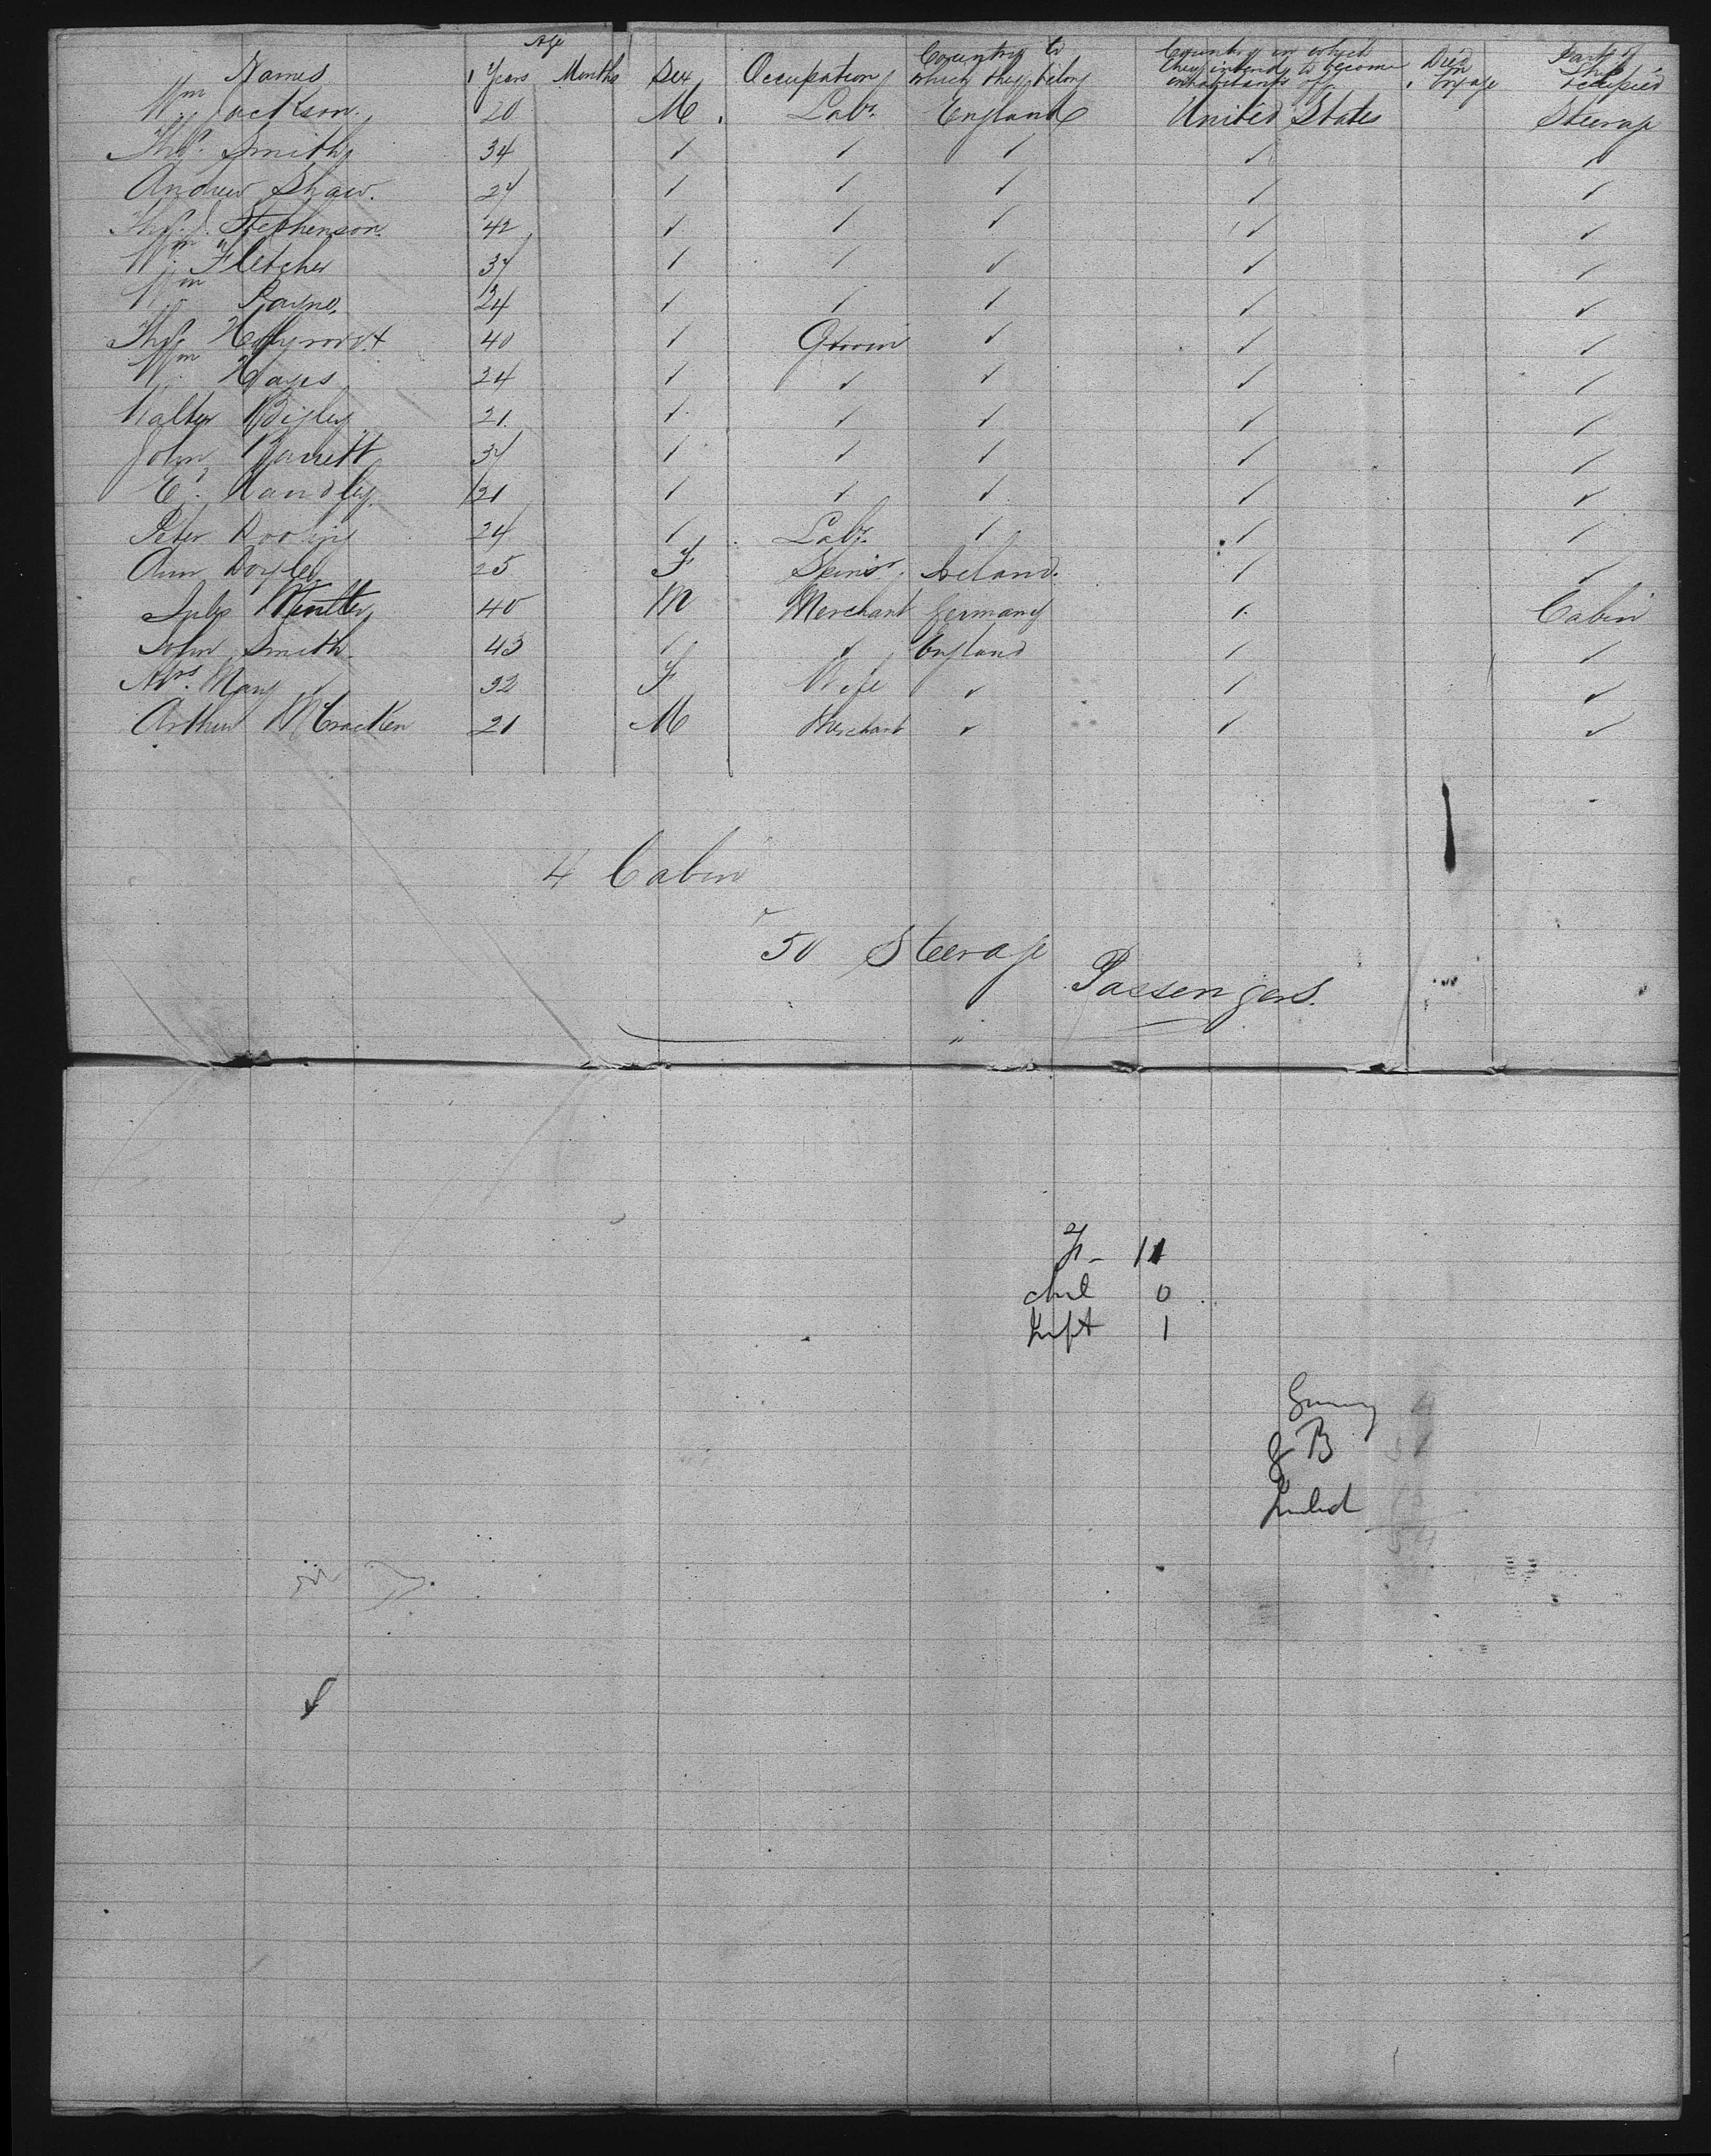 Age
Names Years Months Sex Occupation Country to which they belong Country in which they intend to become inhabitants of Died on Voyage Part of Ship occupied
Wm Jackson. 20 M. Labr. England United States Steerage
Thos. Smith 34 ✓ ✓ ✓ ✓ ✓
Andrew Shaw. 27 ✓ ✓ ✓ ✓ ✓
Thos. J. Stephenson. 42 ✓ ✓ ✓ ✓ ✓
Wm Fletcher 37 ✓ ✓ ✓ ✓ ✓
Wm Payne, 24 ✓ ✓ ✓ ✓ ✓
Thos 40 ✓ ✓ ✓ ✓
Wm Hayes 24 ✓ ✓ ✓ ✓ ✓
Walter Bigley 21. ✓ ✓ ✓ ✓ ✓
John Barrett 37 ✓ ✓ ✓ ✓ ✓
Ed. Handley. 21 ✓ ✓ ✓ ✓ ✓
Peter 24 ✓ Labr. ✓ ✓ ✓
Ann Doyle 25 F Spinsr. Ireland. ✓ ✓
40 M Merchant Germany ✓ Cabin
John Smith. 43 ✓ ✓ England ✓ ✓
Mrs. Mary ✓ 32 F Wife ✓ ✓ ✓
Arthur McCracken 21 M Merchant ✓ ✓ ✓
4 Cabin
50 Steerage
Passengers.
F - 11
chil 0
Inft 1
G B